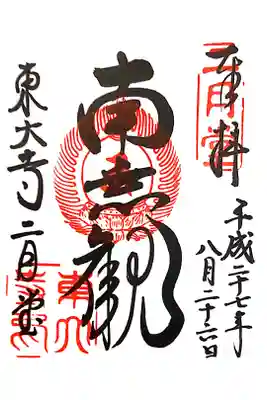 奉拝
平成二十七年
八月二十六日
南無観
東大寺二月堂
二月堂